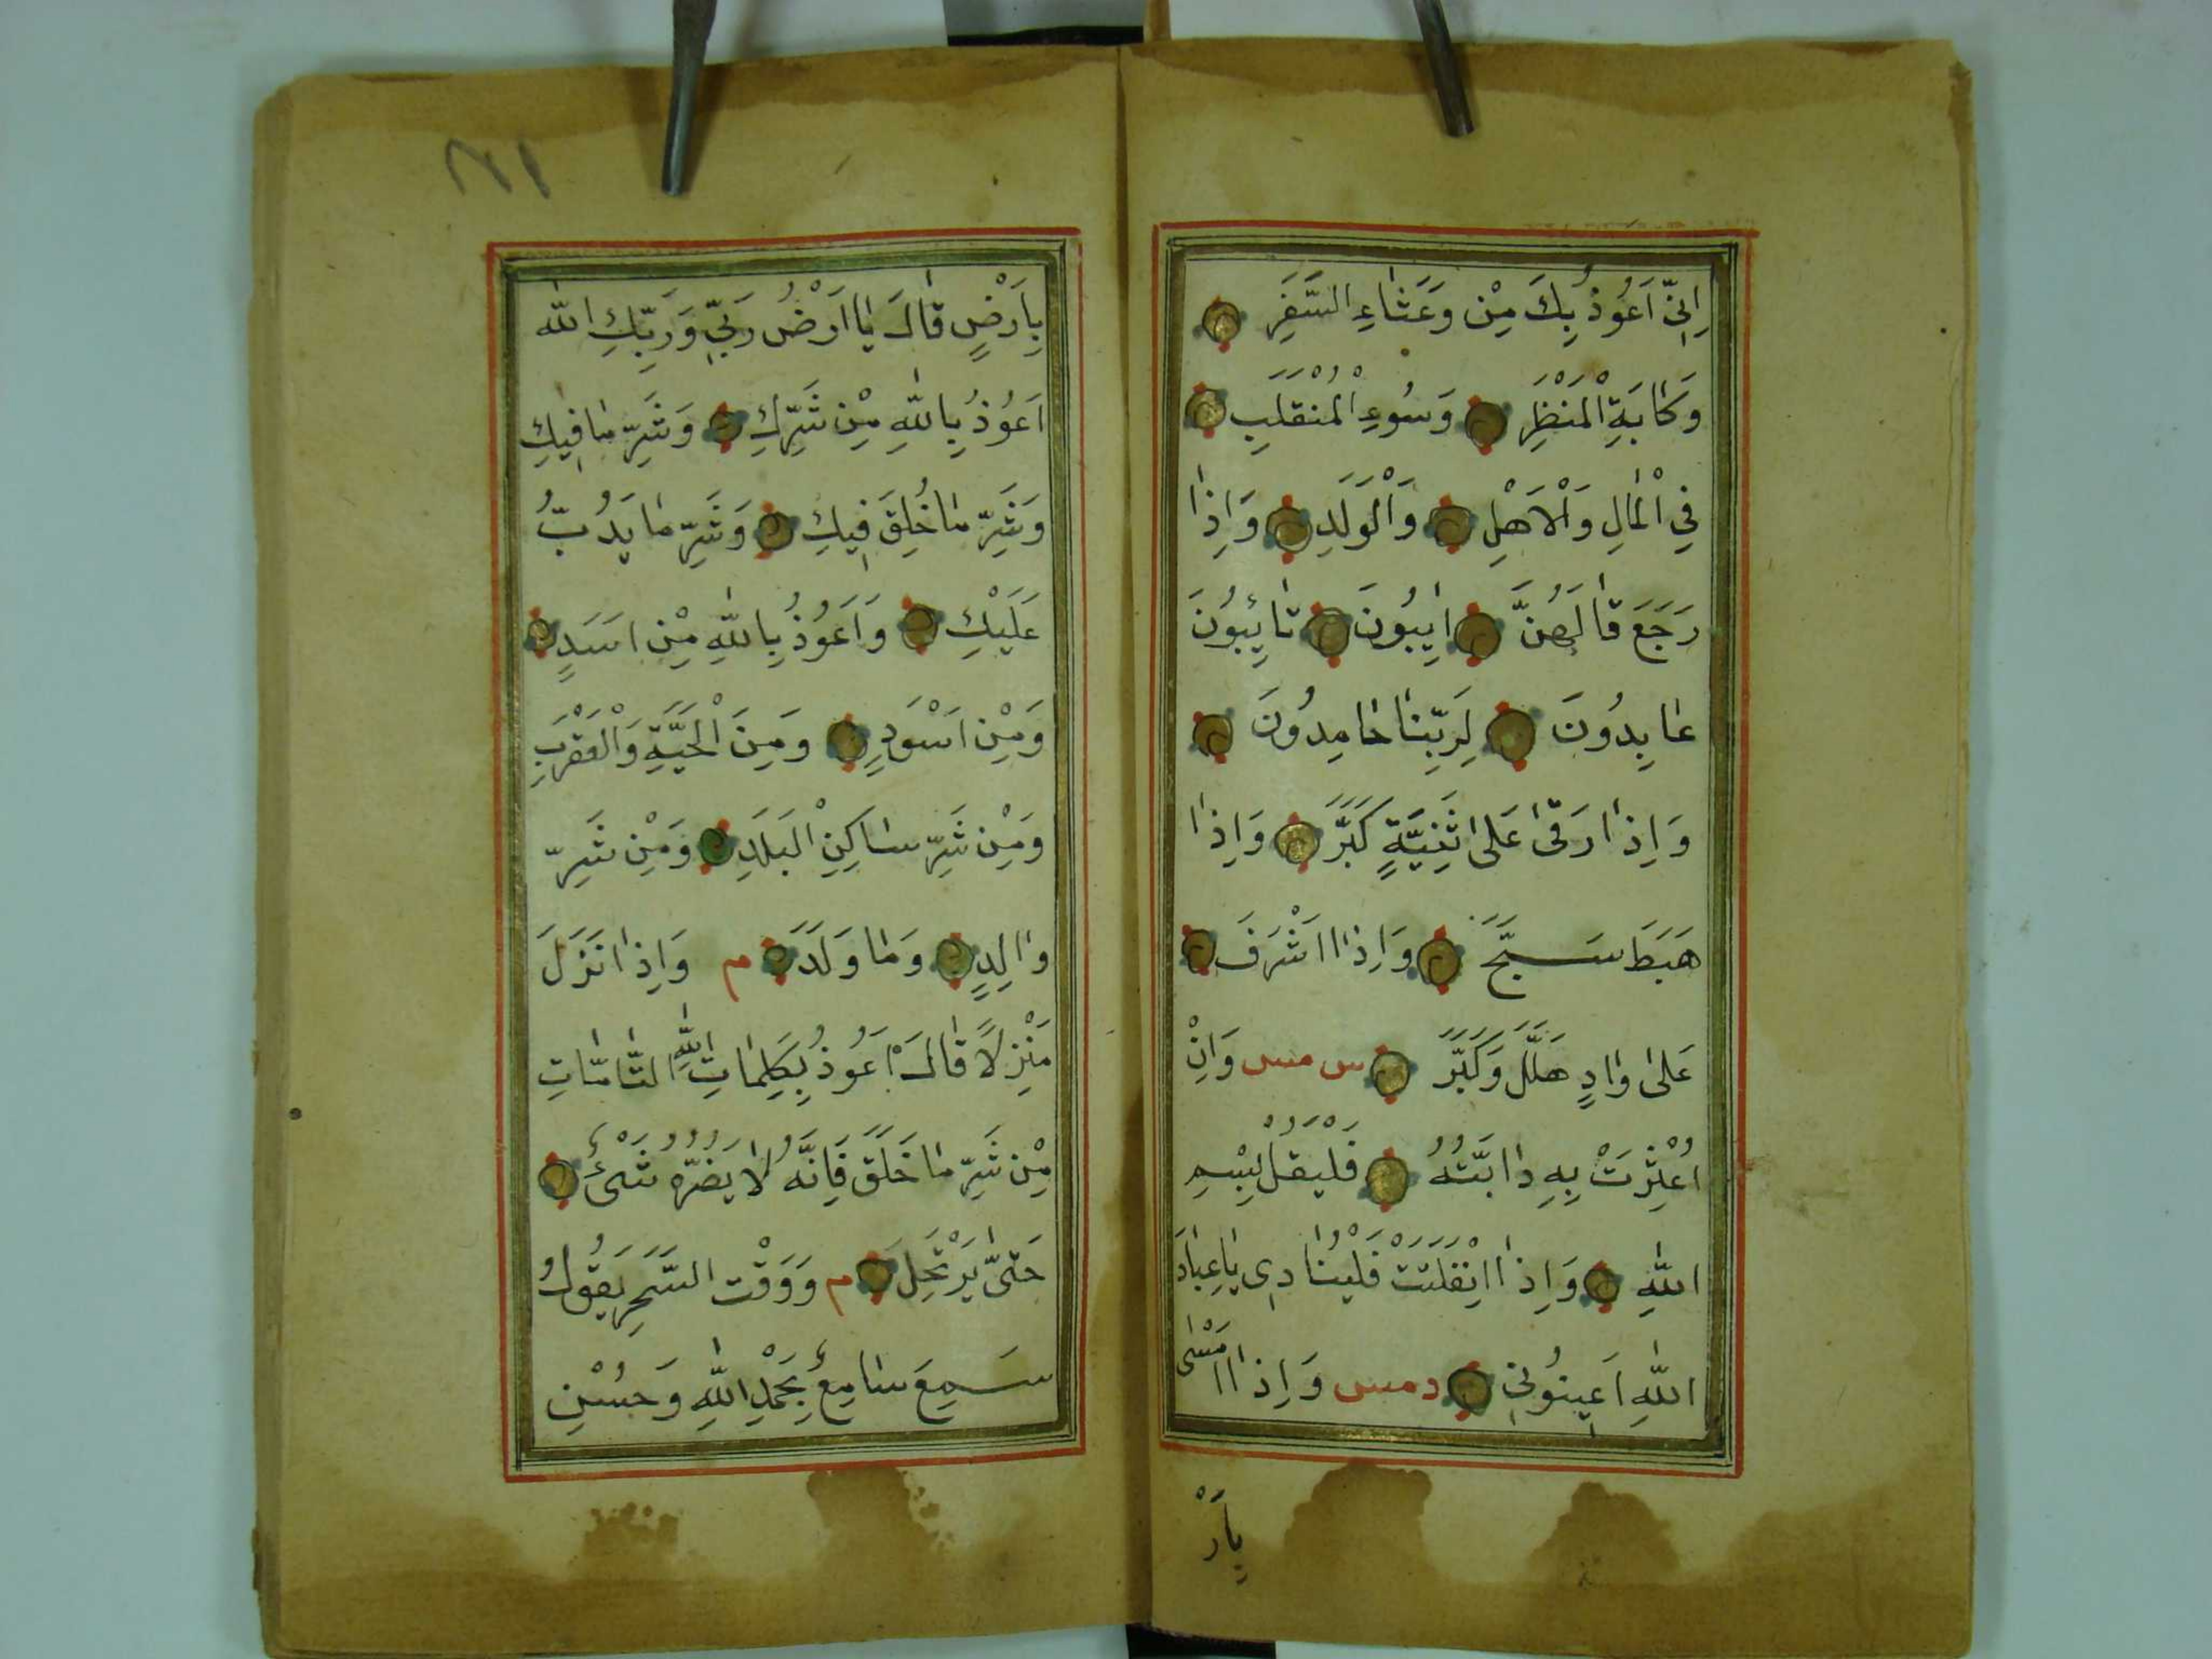 اِنِّي اَعُوذُ بِكَ مِنْ وَعَثَاءِ السَّفَرِ
وَكَابَةِ الْمَنْظَرِ وَسُوءِ الْمُنْقَلَبِ
فِي الْمَالِ وَالْاَهْلِ وَالْوَلَدِ وَاِذَا
رَجَعَ قَالَهُنَّ ايِبُونَ تَائِبُونَ
عَابِدُونَ لِرَبِّنَا حَامِدُونَ
وَاِذَا رَقٰى عَلٰى ثَنِيَّةٍ كَبَّرَ وَاِذَا
هَبَطَ سَبَّحَ وَاِذَا اَشْرَفَ
عَلٰى وَادٍ هَلَّلَ وَكَبَّرَ س مس وَاِنْ
اُعْثِرَتْ بِهِ دَابَّتُهُ فَلْيَقُلْ بِسْمِ
اللّٰهِ وَاِذَا اِنْفَلَتَتْ فَلْيُنَادِي يَاعِبَادَ
اللّٰهِ اَعِينُونِي دمس وَاِذَا اَمْسٰى
يارْ
بِاَرْضٍ قَالَ يَا اَرْضُ رَبِّي وَرَبُّكِ اللّٰه
اَعُوذُ بِاللّٰهِ مِنْ شَرِّكِ وَشَرِّ مَا فِيكِ
وَشَرِّ مَا خُلِقَ فِيكِ وَشَرِّ مَا يَدُبُّ
عَلَيْكِ وَاَعُوذُ بِاللّٰهِ مِنْ اَسَدٍ
وَمِنْ اَسْوَدٍ وَمِنَ الْحَيَّةِ وَالْعَقْرَبِ
وَمِنْ شَرِّ سَاكِنِ الْبَلَدِ وَمِنْ شَرِّ
وَالِدٍ وَمَا وَلَدَ م وَاِذَا نَزَلَ
مَنْزِلًا قَالَ اَعُوذُ بِكَلِمَاتِ اللّٰهِ التَّامَّاتِ
مِنْ شَرِّ مَا خَلَقَ فَاِنَّهُ لَا يَضُرُّهُ شَىْءٌ
حَتّٰى يَرْتَحِلَ م وَوَقْتَ السَّحَرِ يَقُولُ
سَمِعَ سَامِعٌ بِحَمْدِ اللّٰهِ وَحُسْنِ